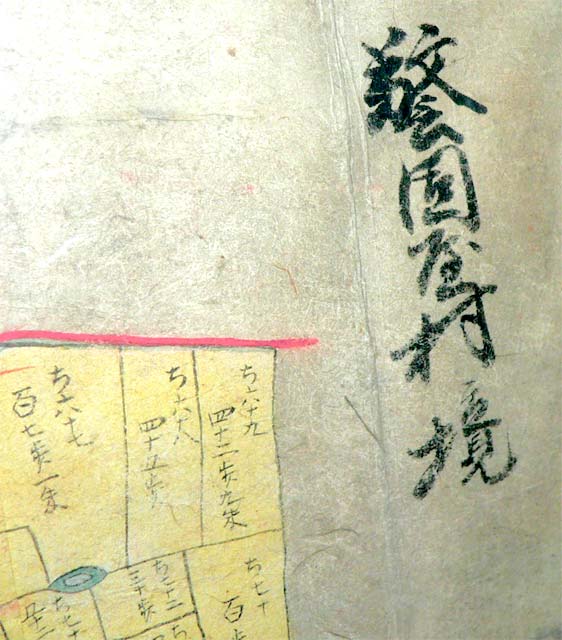 警固屋村境
ち六十九
四十二歩九朱
ち六十八
四十五歩
ち六十七
百七歩一朱
ち七十
百歩
ち七十二
三十歩
ち七十